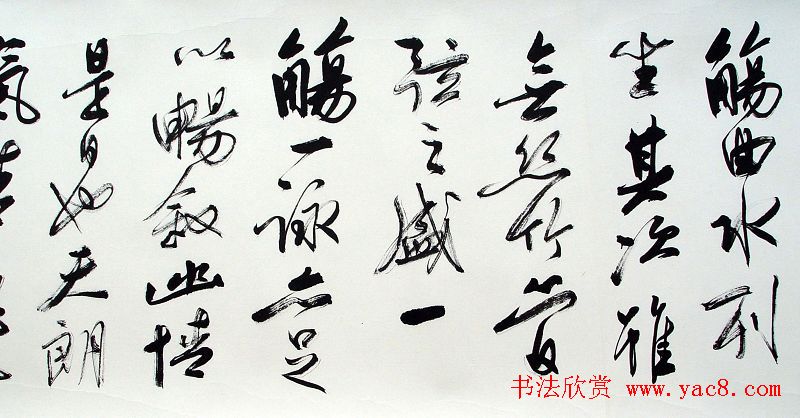 觴曲水列
坐其次雖
無絲竹管
弦之盛一
觴一詠亦足
以暢敘幽情
是日也天朗
氣清
书法欣赏 www.yac8.com